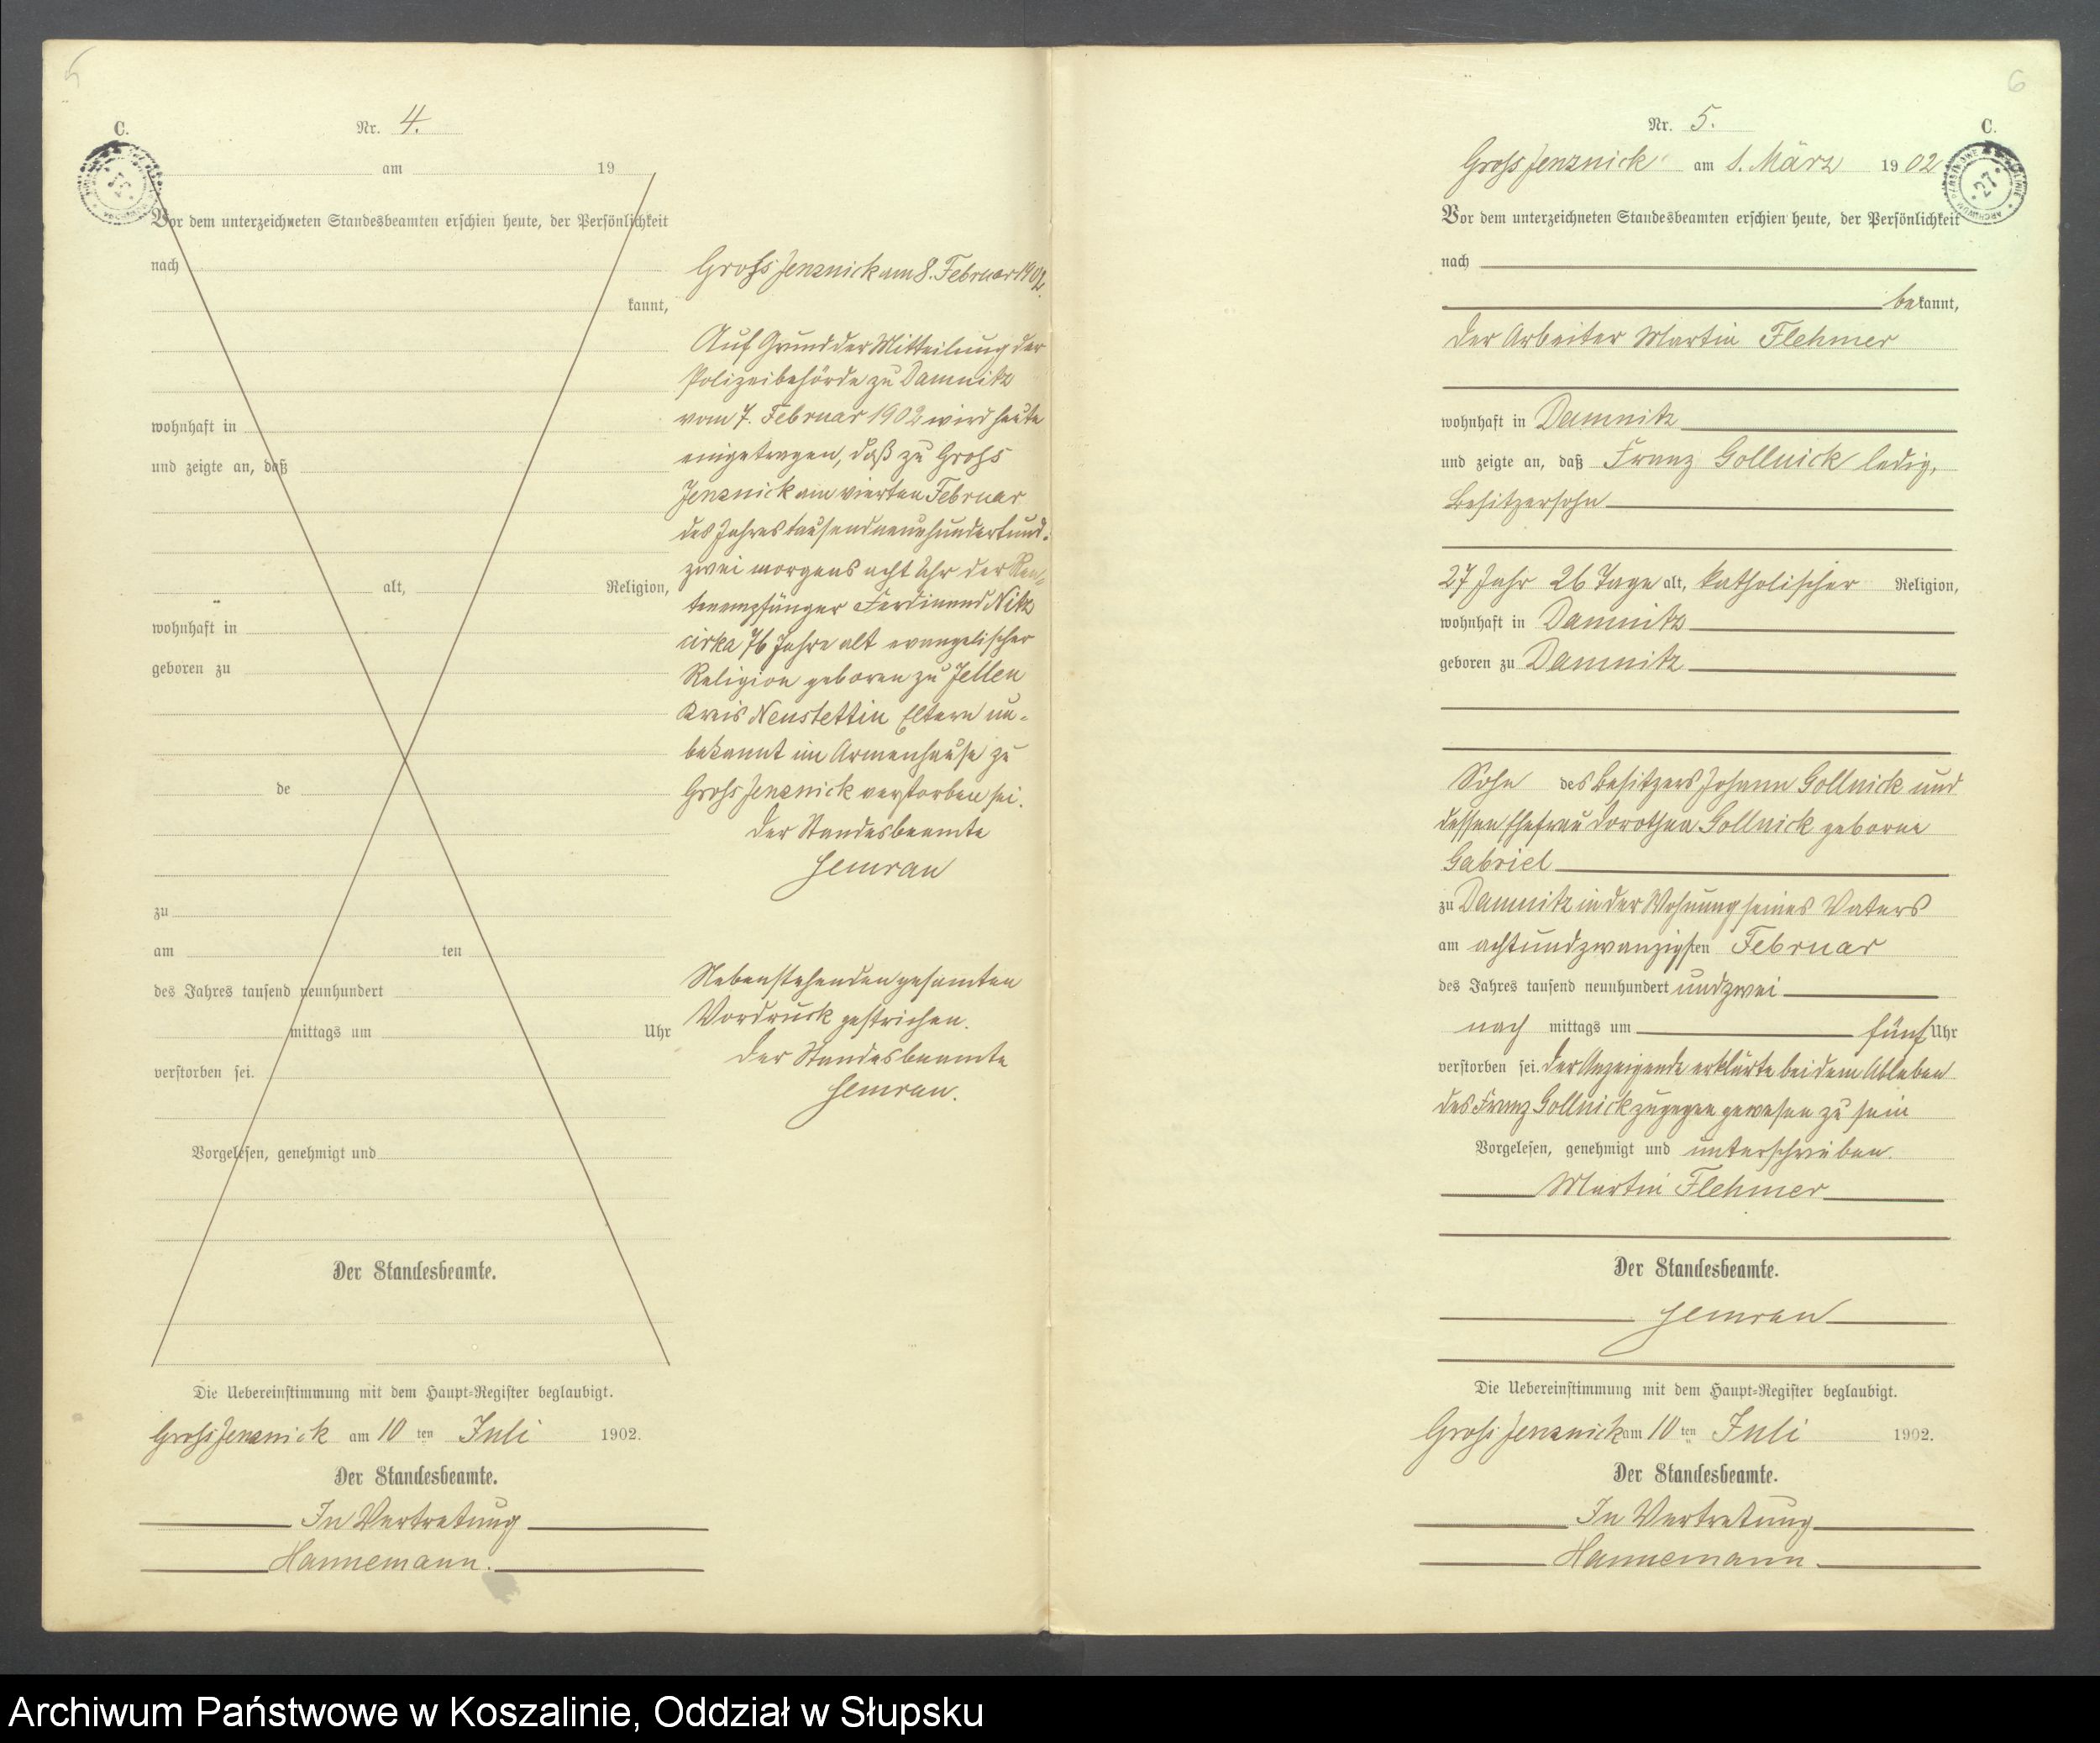 5
C.
Nr. 4.
am 19
Vor dem unterzeichneten Standesbeamten erschien heute, der Persönlichkeit
nach
kannt,
wohnhaft in
und zeigte an, daß
alt, Religion,
wohnhaft in
geboren zu
de
zu
am ten
des Jahres tausend neunhundert
mittags um Uhr
verstorben sei.
Vorgelesen, genehmigt und
Der Standesbeamte.
Groß Jenznick am 8. Februar 1902.
Auf Grund der Mitteilung der
Polizeibehörde zu Damnitz
vom 7. Februar 1902 wird heute
eingetragen, daß zu Groß
Jenznick am vierten Februar
des Jahres tausendneunhundertund-
zwei morgens acht Uhr der Ren-
tenempfänger Ferdinand Nitz
cirka 76 Jahre alt evangelischer
Religion geboren zu Jellen
Kreis Neustettin Eltern un-
bekannt im Armenhause zu
Groß Jenznick verstorben sei.
Der Standesbeamte
Semrau
Nebenstehenden gesamten
Vordruck gestrichen.
Der Standesbeamte
Semrau.
Die Uebereinstimmung mit dem Haupt-Register beglaubigt.
Groß Jenznick am 10 ten Juli 1902.
Der Standesbeamte.
In Vertretung
Hannemann.
6
C.
Nr. 5.
Groß Jenznick am 1. März 1902
Vor dem unterzeichneten Standesbeamten erschien heute, der Persönlichkeit
nach
bekannt,
der Arbeiter Martin Flehmer
wohnhaft in Damnitz
und zeigte an, daß Franz Gollnick ledig,
Besitzersohn
27 Jahr 26 Tage alt, katholischer Religion,
wohnhaft in Damnitz
geboren zu Damnitz
Sohn des Besitzers Johann Gollnick und
dessen Ehefrau Dorothea Gollnick geborne
Gabriel
zu Damnitz in der Wohnung seines Vaters
am achtundzwanzigsten Februar
des Jahres tausend neunhundert undzwei
nach mittags um fünf Uhr
verstorben sei. Der Anzeigende erklärte bei dem Ableben
des Franz Gollnick zugegen gewesen zu sein
Vorgelesen, genehmigt und unterschrieben.
Martin Flehmer
Der Standesbeamte.
Semrau
Die Uebereinstimmung mit dem Haupt-Register beglaubigt.
Groß Jenznick am 10 ten Juli 1902.
Der Standesbeamte.
In Vertretung
Hannemann.
Archiwum Państwowe w Koszalinie, Oddział w Słupsku